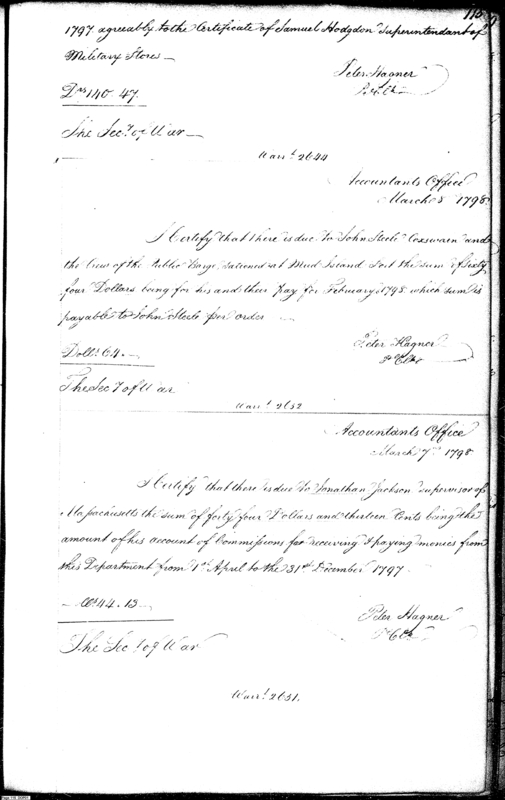 1797 agreeably to the Certificate of Samuel Hodgdon Superintendant of
Military Stores
Peter Hagner
Drs 140.47.
The Secy of War
Warrt 2644
Accountants Office
March 8 1798
I Certify that there is due to John Steele Coxswain and
the Crew of the Public Barge stationed at Mud Island Fort the sum of Sixty
four Dollars being for his and their Pay for February 1798 which sum is
payable to John Steele per order
Peter Hagner
Dolls 64.
The Secy of War
Warrt 2652
Accountants Office
March 7th 1798
I Certify that there is due to Jonathan Jackson Supervisor of
Massachusetts the sum of forty four Dollars and thirteen Cents being the
amount of his account of Commissions for receiving & paying monies from
this Department from 1st April to the 31st December 1797.
44.13
Peter Hagner
The Secy of War
Warrt 2651.